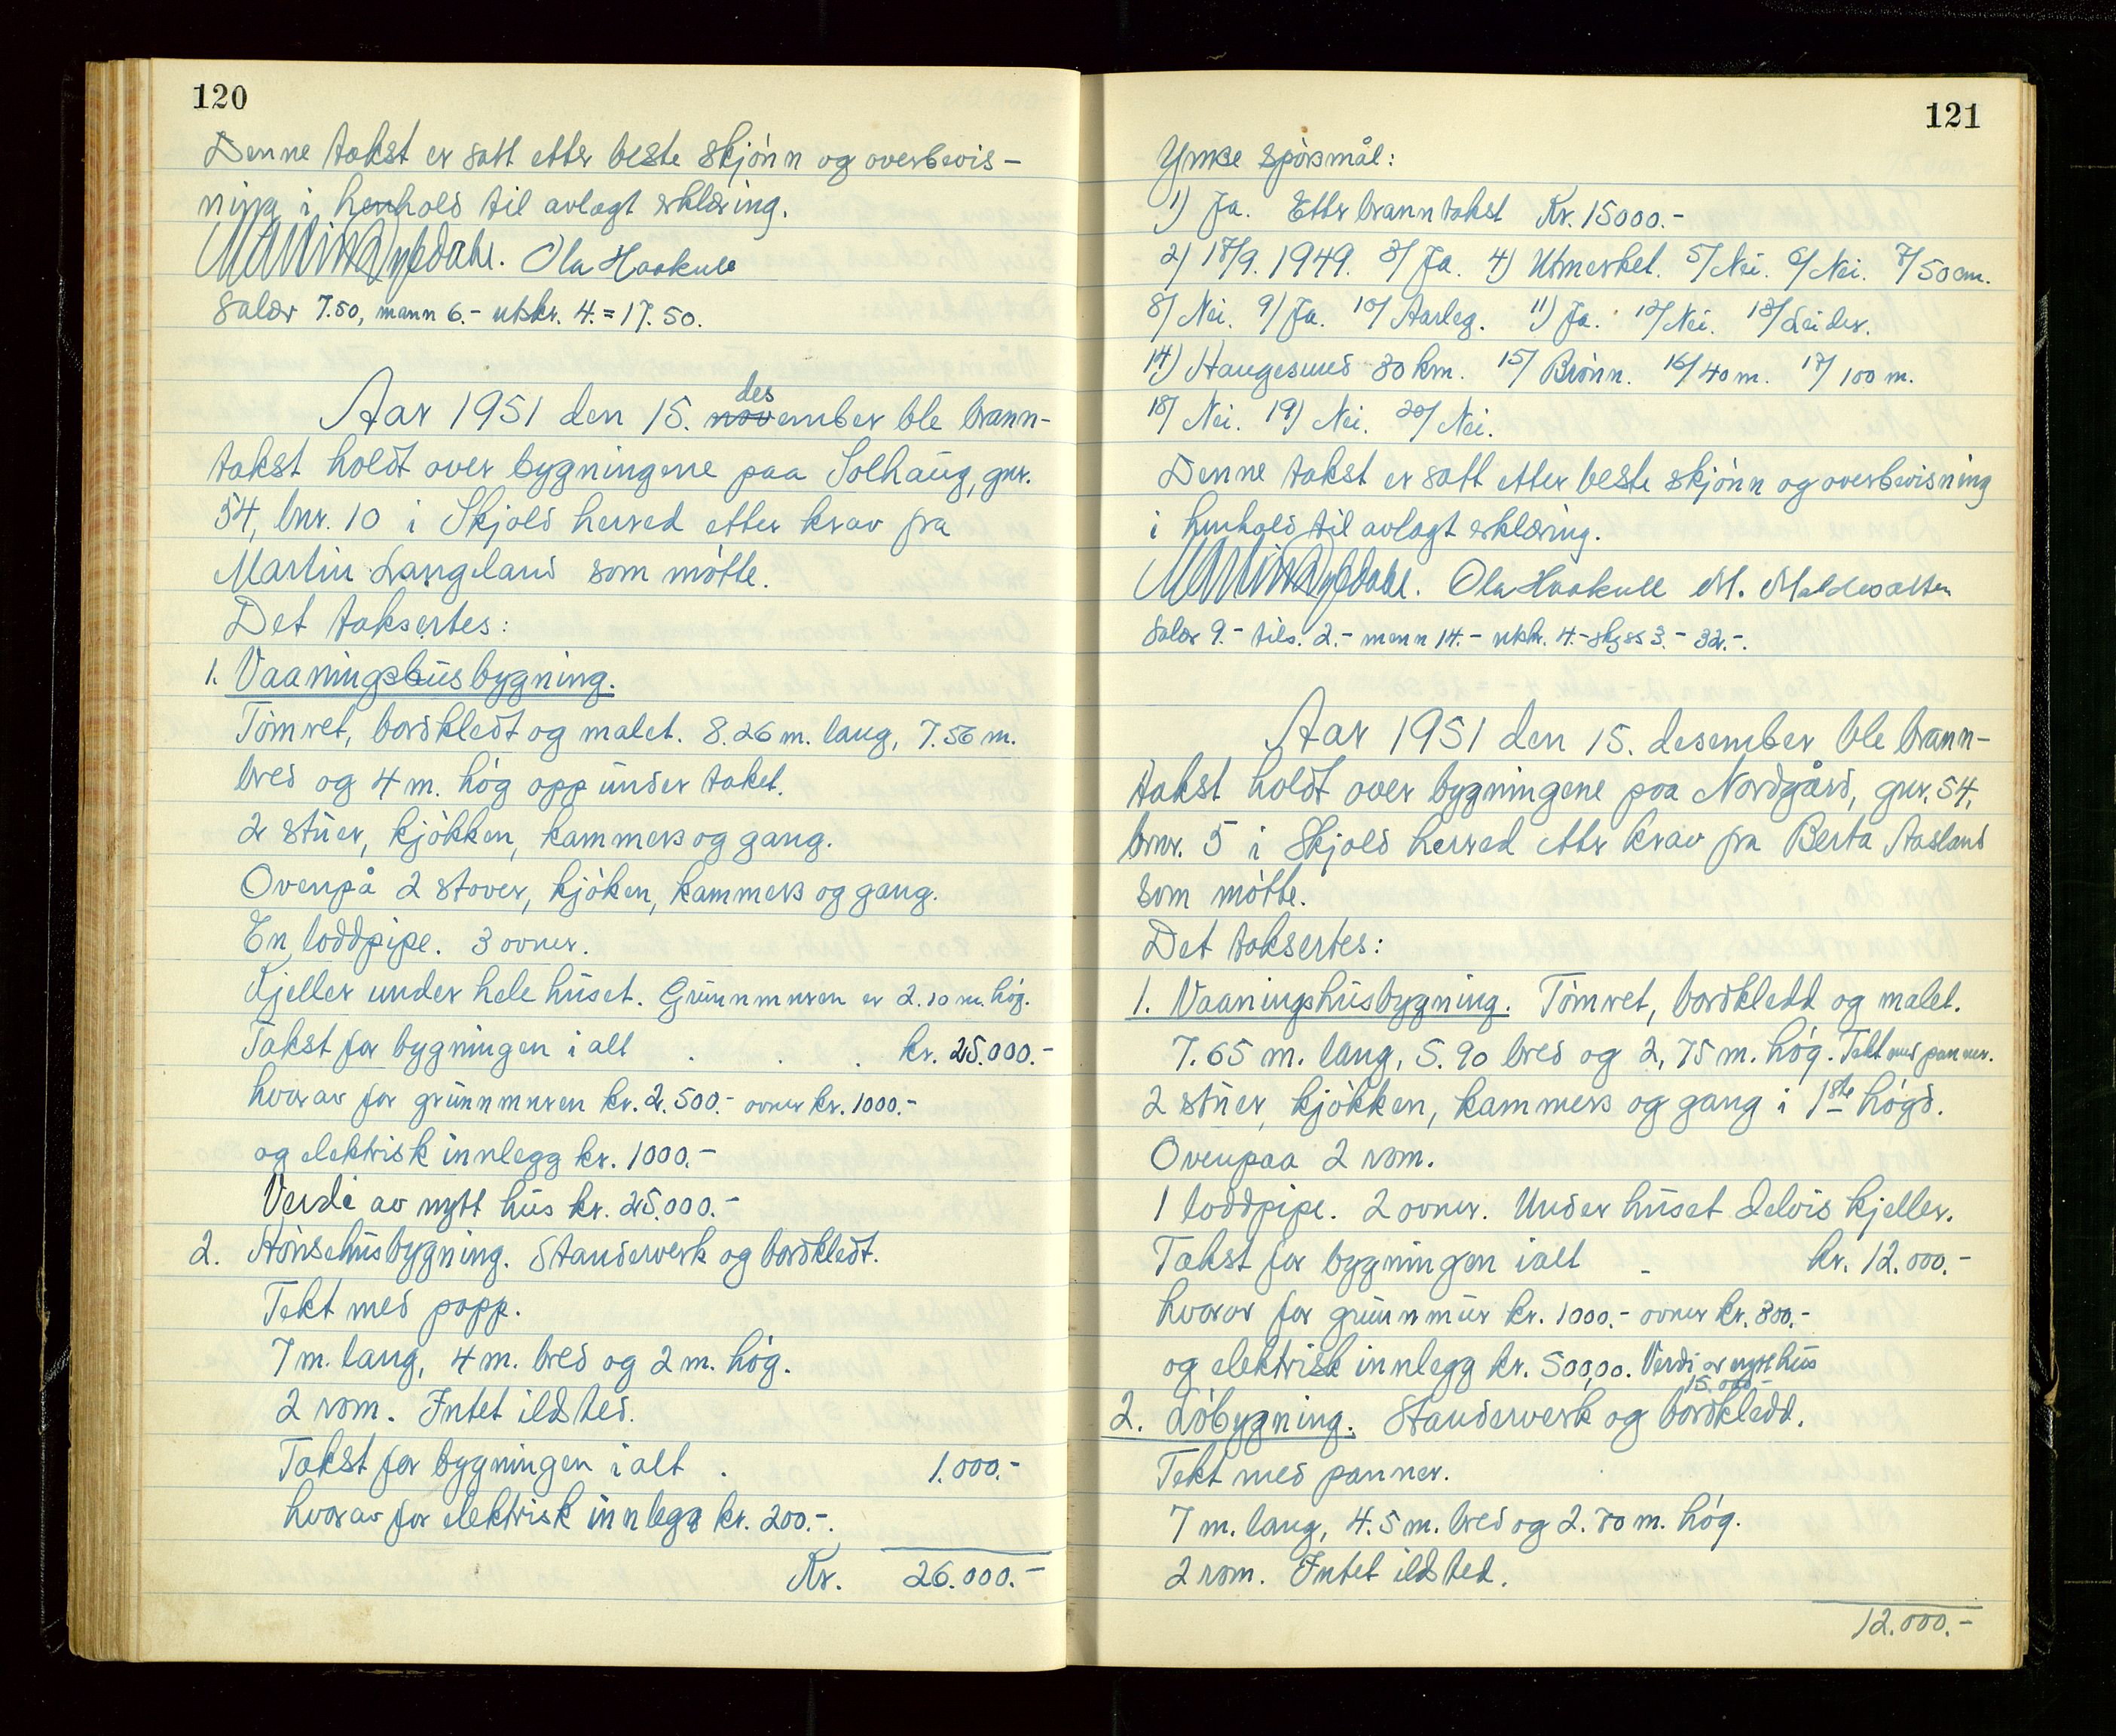 120
Denne takst er satt etter beste skjönn og overbevis-
ning i henhold til avlagt erklæring.
Ola Haakull
Salær 7.50, mann 6.- utskr. 4.=17.50.
Aar 1951 den 15. november ble brann-
des
takst holdt over bygningene paa Solhaug, gnr.
54, bnr. 10 i Skjold herred etter krav fra
Martin Langeland som mötte.
Det taksertes:
1. Vaaningshusbygning.
Tömret, bordkledt og malet. 8.26 m. lang, 7.56 m.
bred og 4 m. hög opp under taket.
2 stuer, kjökken, kammers og gang.
Ovenpå 2 stover, kjöken, kammers og gang.
En loddpipe. 3 ovner.
Kjeller under hele huset. Grunnmuren er 2.10 m. hög.
Takst for bygningen i alt . . . kr. 25.000.-
hvorav for grunnmuren kr. 2.500.- ovner kr. 1000.-
og elektrisk innlegg kr. 1000.-
Verdi av nytt hus kr. 25.000.-
2. Hönsehusbygning. Standerverk og bordkledt.
Tekt med papp.
7 m. lang, 4 m. bred og 2 m. hög.
2 rom. Intet ildsted.
Takst for bygningen i alt . 1.000.-
hvorav for elektrisk innlegg kr. 200.-.
Kr. 26.000.-
121
Ymse spörsmål:
1) Ja. Etter branntakst Kr. 15000.-
2) 18/9. 1949. 3/ Ja. 4) Utmerket. 5/ Nei. 6/ Nei. 7/ 50 cm.
8/ Nei. 9/ Ja. 10/ Aarleg. 11) Ja. 12/ Nei. 13/ Leider.
14) Haugesund 30 km. 15/ Brönn. 16/ 40 m. 17/ 100 m.
18/ Nei. 19) Nei. 20/ Nei.
Denne takst er satt etter beste skjönn og overbevisning
i henhold til avlagt erklæring.
Ola Haakull M.
Salær 9.- tils. 2.- mann 14.- utskr. 4.- skyss 3.- 32.-.
Aar 1951 den 15. desember ble brann-
takst holdt over bygningene paa Nordgård, gnr. 54,
bnr. 5 i Skjold herred etter krav fra Berta Aasland
som mötte.
Det taksertes:
1. Vaaningshusbygning. Tömret, bordkledd og malet.
7.65 m. lang, 5.90 bred og 2,75 m. hög. Tekt med panner.
2 stuer, kjökken, kammers og gang i 1ste högd.
Ovenpaa 2 rom.
1 loddpipe. 2 ovner. Under huset delvis kjeller.
Takst for bygningen ialt - kr. 12.000.-
hvorav for grunnmur kr. 1000.- ovner kr. 800.-
og elektrisk innlegg kr. 500,00. Verdi av nytt hus
15.000.-
2. Löbygning. Standerverk og bordkledd.
Tekt med panner.
7 m. lang, 4.5 m. bred og 2.80 m. hög.
2 rom. Intet ildsted.
12.000.-